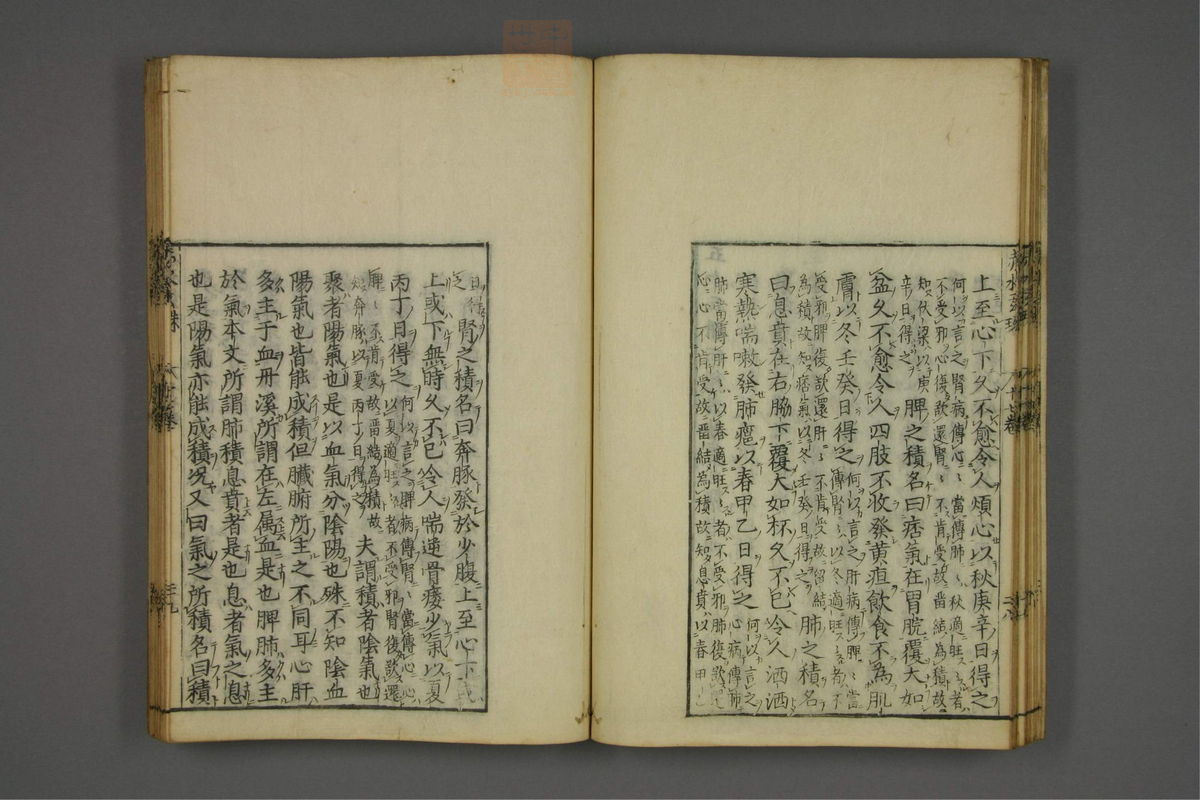 上至心下久不愈令人煩心以秋庚辛日得之
何以言之腎病傳心心當傳肺肺秋適旺旺者
不受邪心復欲還腎腎不肯受故畱結為積故
知伏梁以庚
辛日得之
脾之積名曰痞氣在胃脘覆大如
盆久不愈令人四肢不收發黃疸飲食不為肌
膚以冬壬癸日得之
何以言之肝病傳脾脾當
傳腎腎以冬適旺旺者不
受邪脾復欲還肝肝不肯受故留結
為積故知痞氣以冬壬癸日得之
肺之積名
曰息賁在右脇下覆大如杯久不已令人洒洒
寒熱喘嗽發肺癰以春甲乙日得之
何以言之
心病傳肺
肺當傳肝肝以春適旺旺者不受邪肺復欲還
心心不肯受故畱結為積故知息賁以春甲乙
日得之
腎之積名曰奔豚發於少腹上至心下或
上或下無時久不已令人喘逆骨痿少氣以夏
丙丁日得之
何以言之脾病傳腎腎當傳心心
以夏適旺旺者不受邪腎復欲還
脾脾不肯受故畱結為積故
知奔豚以夏丙丁日得之
夫謂積者陰氣也
聚者陽氣也是以血氣分陰陽也殊不知陰血
陽氣也皆能成積但臟腑所主之不同耳心肝
多主于血丹溪所謂在左属血是也脾肺多主
於氣本文所謂肺積息賁者是也息者氣之息
也是陽氣亦能成積况又曰氣之所積名曰積